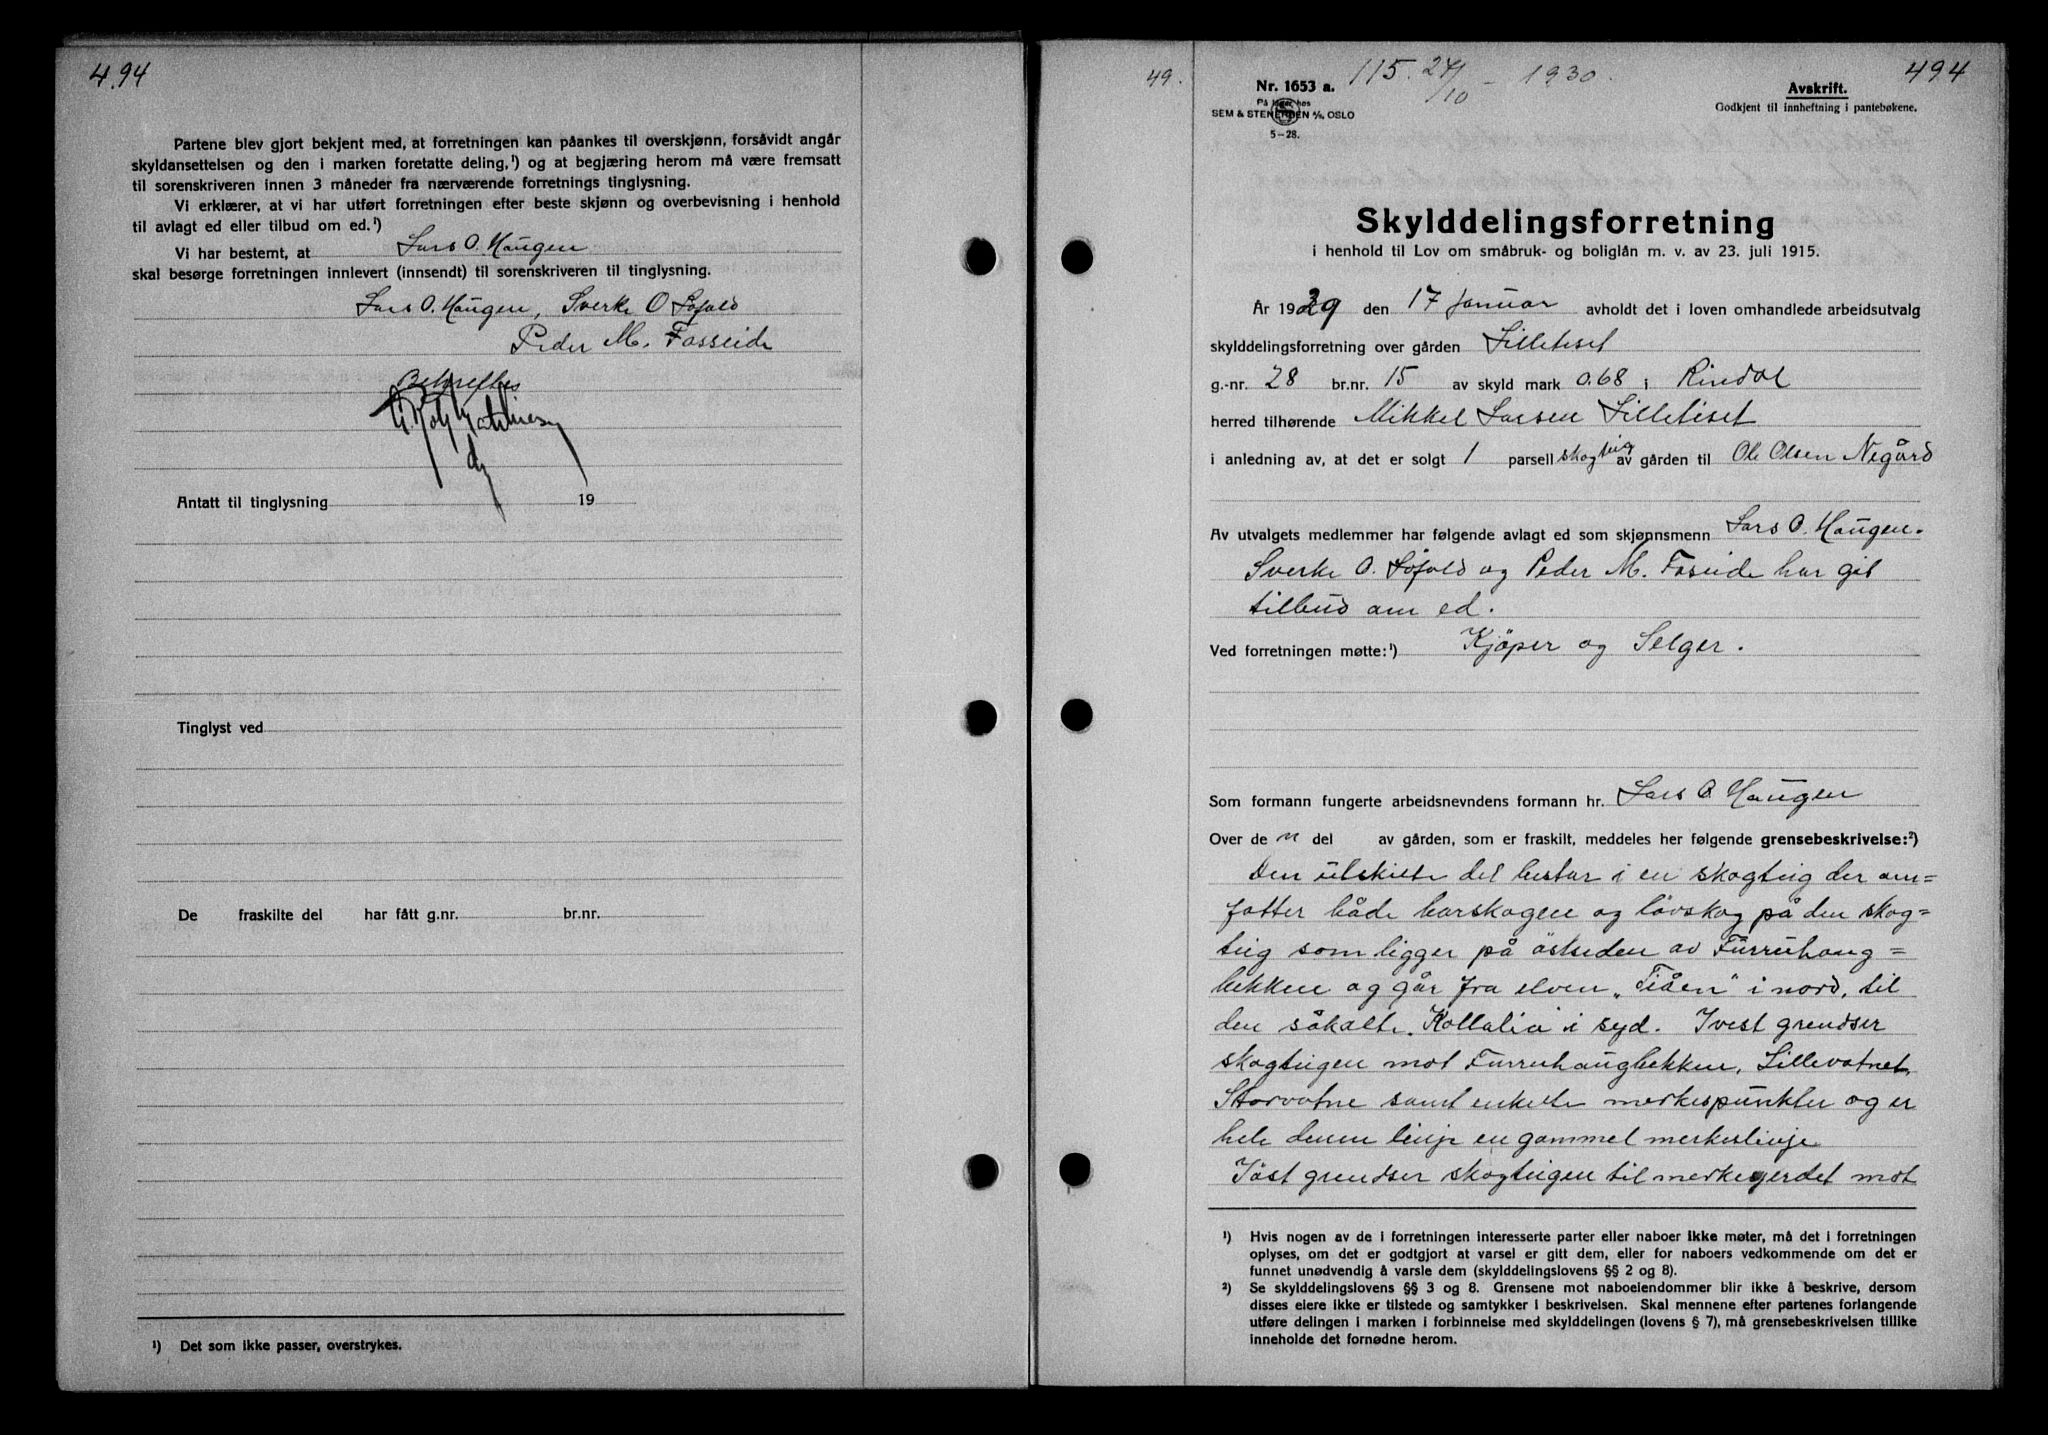 4.94
Partene blev gjort bekjent med, at forretningen kan påankes til overskjønn, forsåvidt angår
skyldansettelsen og den i marken foretatte deling,¹) og at begjæring herom må være fremsatt
til sorenskriveren innen 3 måneder fra nærværende forretnings tinglysning.
Vi erklærer, at vi har utført forretningen efter beste skjønn og overbevisning i henhold
til avlagt ed eller tilbud om ed.¹)
Vi har bestemt, at Lars O. Haugen
skal besørge forretningen innlevert (innsendt) til sorenskriveren til tinglysning.
Lars O. Haugen, Sverke O Løfald
Peder M. Fosseide
Bekreftes
Antatt til tinglysning 19
Tinglyst ved
De fraskilte del har fått g.nr. br.nr.
¹) Det som ikke passer, overstrykes.
49.
Nr. 1653 a.
På lager hos
SEM & STENERSEN A/S, OSLO
5-28.
115. 24/1 - 1930.
10
494
Avskrift.
Godkjent til innheftning i pantebøkene.
Skylddelingsforretning
i henhold til Lov om småbruk- og boliglån m. v. av 23. juli 1915.
År 1929 den 17 januar avholdt det i loven omhandlede arbeidsutvalg
skylddelingsforretning over gården Lilletiset
g.-nr. 28 br.nr. 15 av skyld mark 0.68 i Rindal
herred tilhørende Mikkel Larsen Lilletiset
i anledning av, at det er solgt 1 parsell skogteig av gården til Ole Olsen Negård
Av utvalgets medlemmer har følgende avlagt ed som skjønnsmenn Lars O. Haugen.
Sverke O. Løfald og Peder M. Foseide har git
tilbud om ed.
Ved forretningen møtte:¹) Kjøper og Selger.
Som formann fungerte arbeidsnevndens formann hr. Lars O. Haugen
Over de n del av gården, som er fraskilt, meddeles her følgende grensebeskrivelse:²)
Den utskilte del består i en skogteig der om=
fatter både barskogen og løvskog på den skog=
teig som ligger på østsiden av Furruhaug=
bekken og går fra elven „Tiåen" i nord, til
den såkalte „Kollalia" i syd. I vest grendser
skogteigen mot Furruhaugbekken, Lillevatnet,
Storvatne samt enkelte merkespunkter og er
hele denne linje en gammel merkeslinje
I øst grendser skogteigen til merkegjerdet mot
¹) Hvis nogen av de i forretningen interesserte parter eller naboer ikke møter, må det i forretningen
oplyses, om det er godtgjort at varsel er gitt dem, eller for naboers vedkommende om det er
funnet unødvendig å varsle dem (skylddelingslovens §§ 2 og 8).
²) Se skylddelingslovens §§ 3 og 8. Grensene mot naboeiendommer blir ikke å beskrive, dersom
disses eiere ikke er tilstede og samtykker i beskrivelsen. Skal mennene efter partenes forlangende
utføre delingen i marken i forbinnelse med skylddelingen (lovens § 7), må grensebeskrivelsen tillike
inneholde det fornødne herom.